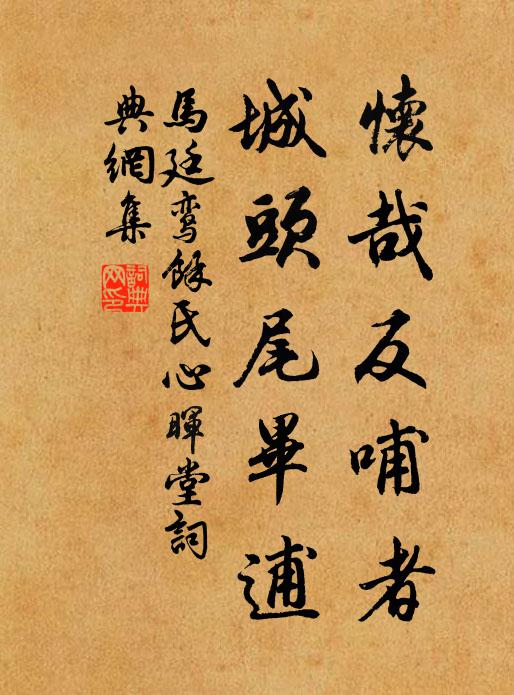 懷哉反哺者
城頭尾畢逋
馬廷鸞餘氏心暉堂詞
典網集
詞典網印